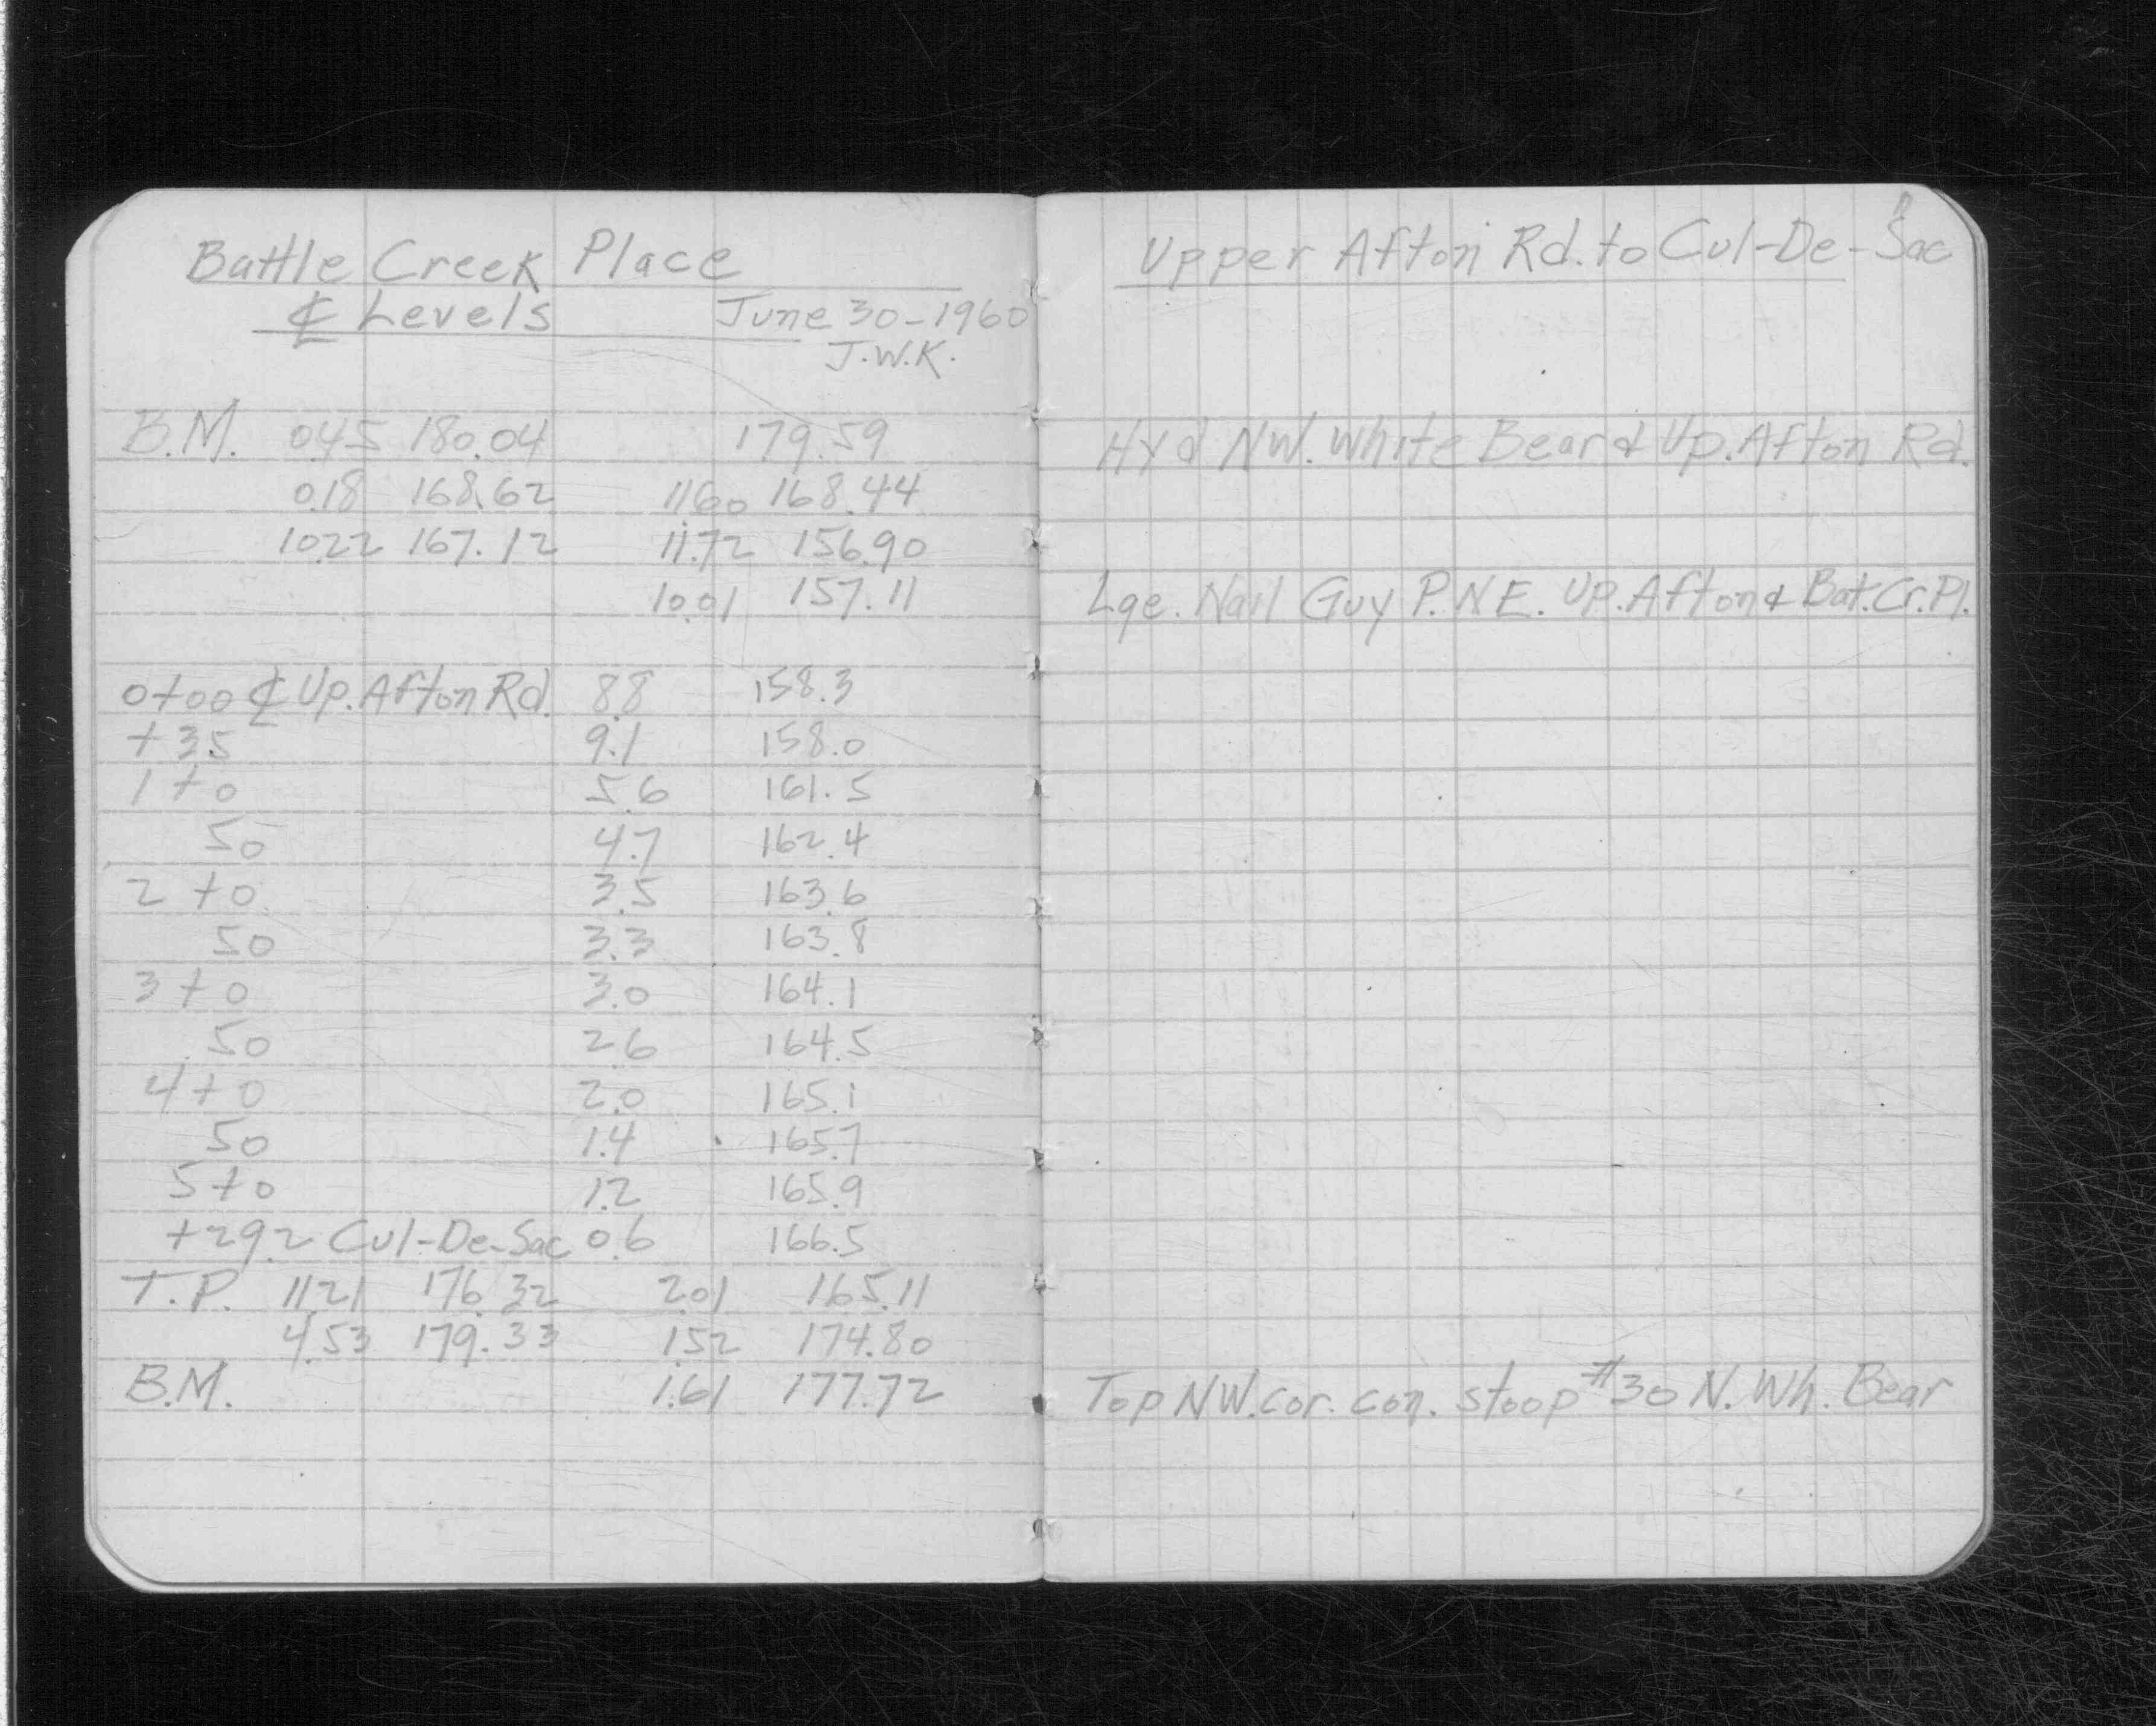 Battle Creek Place
℄ Levels June 30-1960
J.W.K.
B.M. 0.45 180.04 179.59
0.18 168.62 11.60 168.44
10.22 167.12 11.72 156.90
10.01 157.11
0+00 ℄ Up. Afton Rd. 8.8 158.3
+35 9.1 158.0
1+0 5.6 161.5
50 4.7 162.4
2+0 3.5 163.6
50 3.3 163.8
3+0 3.0 164.1
50 2.6 164.5
4+0 2.0 165.1
50 1.4 165.7
5+0 1.2 165.9
+29.2 Cul-De-Sac 0.6 166.5
T.P. 11.21 176.32 2.01 165.11
4.53 179.33 1.52 174.80
B.M. 1.61 177.72
Upper Afton Rd. to Cul-De-Sac
Hyd NW. White Bear & Up. Afton Rd.
Lge. Nail Guy P. N E. Up. Afton & Bat. Cr. Pl.
Top NW. cor. con. stoop #30 N. Wh. Bear